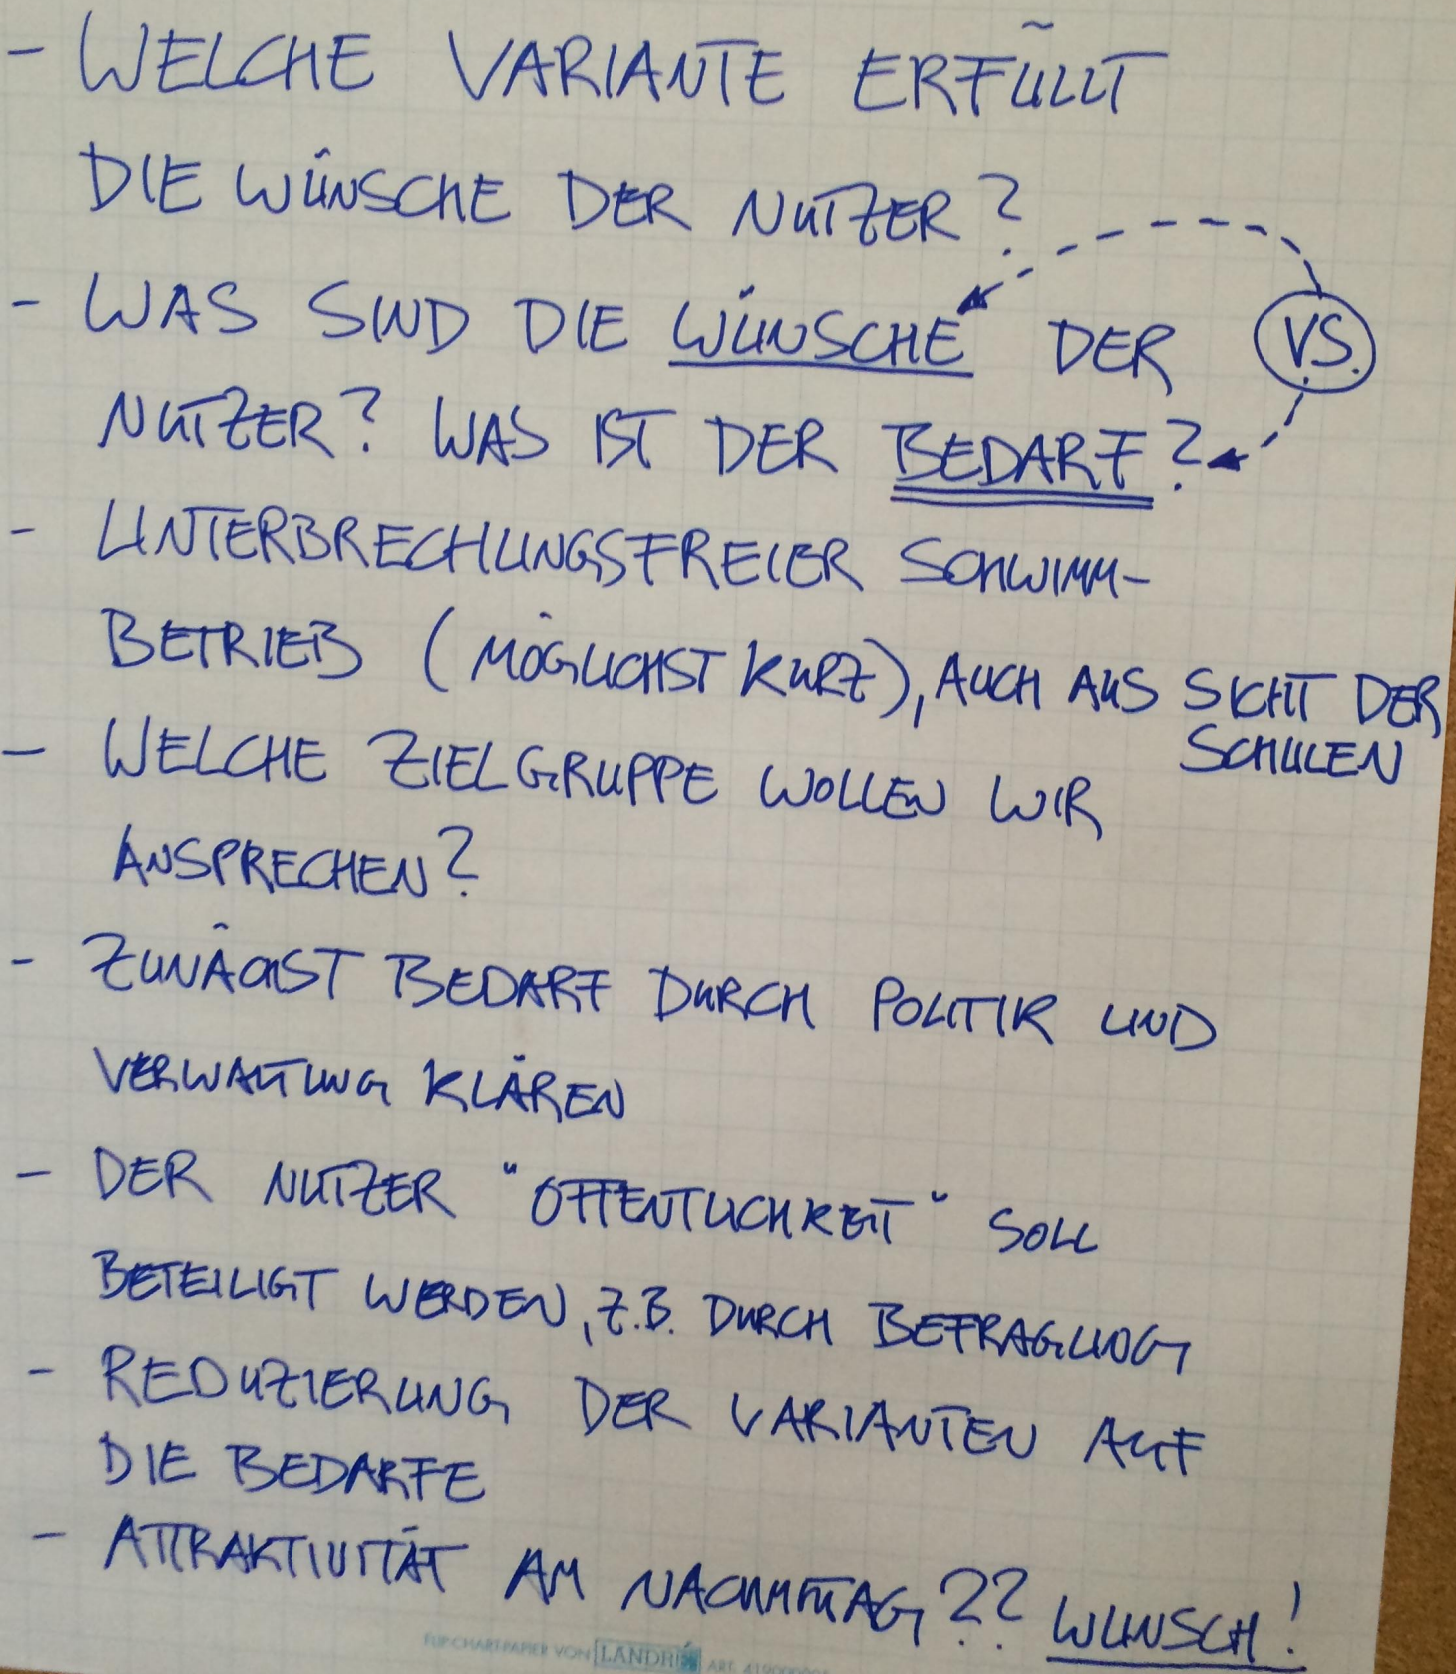 - WELCHE VARIANTE ERFÜLLT
DIE WÜNSCHE DER NUTZER?
- WAS SIND DIE WÜNSCHE DER
VS.
NUTZER? WAS IST DER BEDARF?
- UNTERBRECHUNGSFREIER SCHWIMM-
BETRIEB (MÖGLICHST KURZ), AUCH AUS SICHT DER
SCHULEN
- WELCHE ZIELGRUPPE WOLLEN WIR
ANSPRECHEN?
- ZUNÄCHST BEDARF DURCH POLITIK UND
VERWALTUNG KLÄREN
- DER NUTZER "ÖFFENTLICHKEIT" SOLL
BETEILIGT WERDEN, Z.B. DURCH BEFRAGUNG
- REDUZIERUNG DER VARIANTEN AUF
DIE BEDARFE
- ATTRAKTIVITÄT AM NACHMITTAG?? WUNSCH!
FLIPCHART-PAPIER VON LANDRÉ ART.